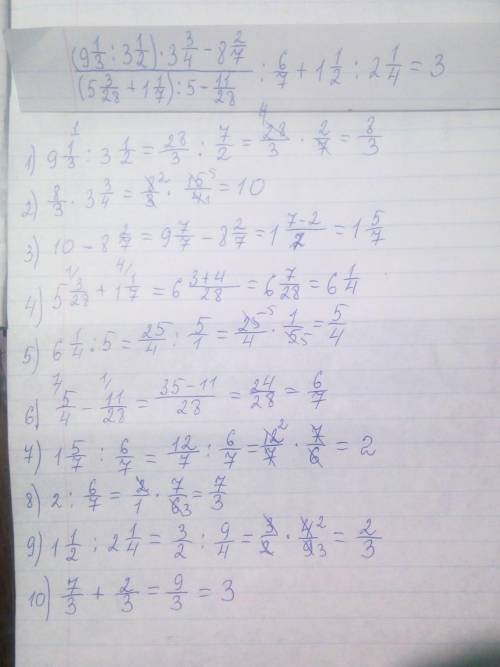 ((9 1/3 : 3 1/2) · 3 3/4 − 8 2/7) / ((5 3/28 + 1 1/7) : 5 − 11/28) : 6/7 + 1 1/2 : 2 1/4 = 3
1) 9 1/3 : 3 1/2 = 28/3 : 7/2 = 28/3 · 2/7 = 8/3
2) 8/3 · 3 3/4 = 8/3 · 15/4 = 10
3) 10 − 8 2/7 = 9 7/7 − 8 2/7 = 1 (7−2)/7 = 1 5/7
4) 5 3/28 + 1 1/7 = 6 (3+4)/28 = 6 7/28 = 6 1/4
5) 6 1/4 : 5 = 25/4 : 5/1 = 25/4 · 1/5 = 5/4
6) 5/4 − 11/28 = (35−11)/28 = 24/28 = 6/7
7) 1 5/7 : 6/7 = 12/7 : 6/7 = 12/7 · 7/6 = 2
8) 2 : 6/7 = 2/1 · 7/6 = 7/3
9) 1 1/2 : 2 1/4 = 3/2 : 9/4 = 3/2 · 4/9 = 2/3
10) 7/3 + 2/3 = 9/3 = 3